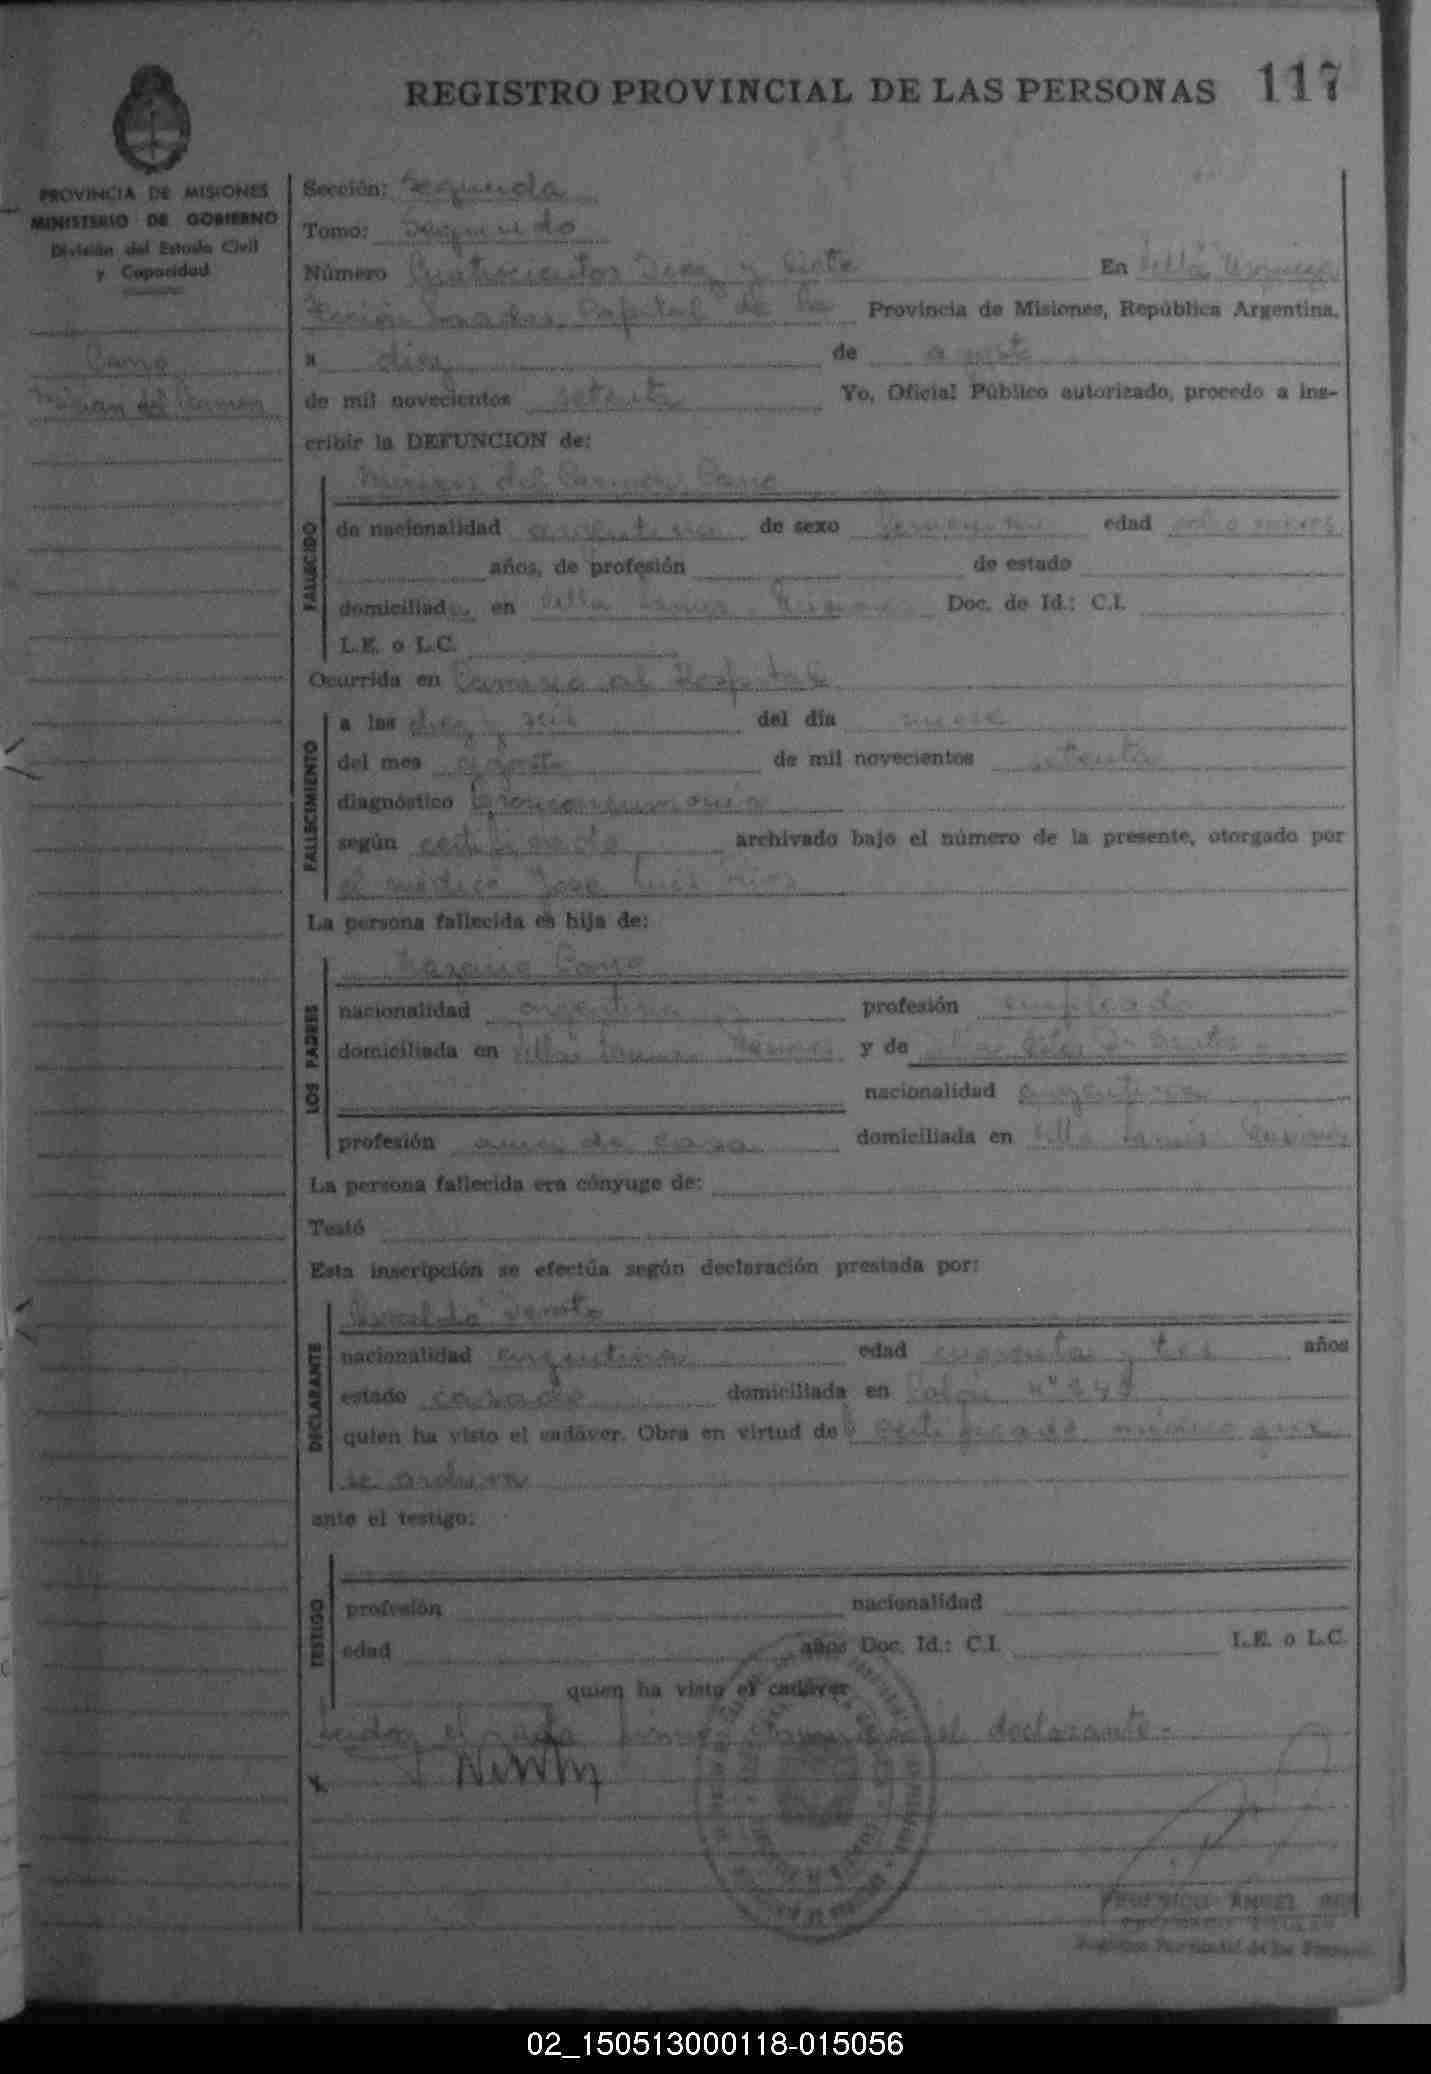 REGISTRO PROVINCIAL DE LAS PERSONAS 117
PROVINCIA DE MISIONES
MINISTERIO DE GOBIERNO
División del Estado Civil
y Capacidad
Cano
Mirian del Carmen
Sección: Segunda
Tomo: Segundo
Número Cuatrocientos Diez y Siete En Villa Urquiza
Posadas Capital de la Provincia de Misiones, República Argentina,
a diez de agosto
de mil novecientos setenta Yo, Oficial Público autorizado, procedo a ins-
cribir la DEFUNCION de:
Mirian del Carmen Cano
FALLECIDO
de nacionalidad argentina de sexo femenino edad ocho meses
años, de profesión de estado
domiciliada en Villa Lanus Misiones Doc. de Id.: C.I.
L.E. o L.C.
Ocurrida en Camino al Hospital
FALLECIMIENTO
a las diez y seis del día nueve
del mes agosto de mil novecientos setenta
diagnóstico bronconeumonia
según certificado archivado bajo el número de la presente, otorgado por
el médico Jose Luis Rios
La persona fallecida es hija de:
LOS PADRES
Cano
nacionalidad argentina profesión empleado
domiciliada en Villa Lanus Misiones y de
nacionalidad argentina
profesión ama de casa domiciliada en Villa Lanus Misiones
La persona fallecida era cónyuge de:
Testó
Esta inscripción se efectúa según declaración prestada por:
DECLARANTE
nacionalidad argentina edad cuarenta y tres años
estado casado domiciliada en Colón Nº
quien ha visto el cadáver. Obra en virtud del certificado médico que
se archiva
ante el testigo:
TESTIGO
profesión nacionalidad
edad años Doc. Id.: C.I. L.E. o L.C.
quien ha visto el cadáver
Leida el acta firma el declarante.-
ANGEL
Registro Provincial de las Personas
02_150513000118-015056